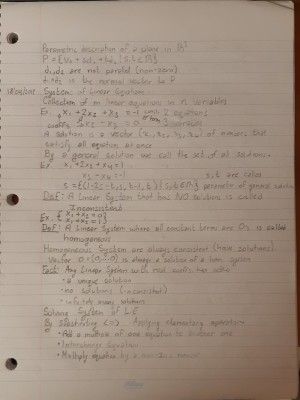 Parametric description of a plane in R³
P = {V₀ + sd₁ + td₂ | s,t ∈ R}
d₁, d₂ are not parallel (non-zero)
is the normal vector to P
System of Linear Equation
Collection of m linear equations in n variables
Ex. x₁ + 2x₂ + x₃ = -1 2 equations
- x₃ = 0 3 variables
A solution is a vector of numbers that
satisfy all equation at once
By a general solution we call the set of all solutions.
Ex.
x₃ - x₄ = -1 s,t are
s,t ∈ R} of general solution
Def: A Linear System that has NO solutions is called
Inconsistent
Ex.
Def: A Linear System where all constant terms are 0's is called
homogenous
Homogeneous System are always consistent (have solutions)
Vector 0 = (0,...0) is always a solution of a hom. system
Fact: Any Linear System with real coeffs has either
• a unique solution
• no solutions (inconsistent)
• infinitely many solutions
Solving System of LE
By Applying elementary operations
• Add a multiple of one equation to another one
• Interchange Equation
• Multiply equation by a